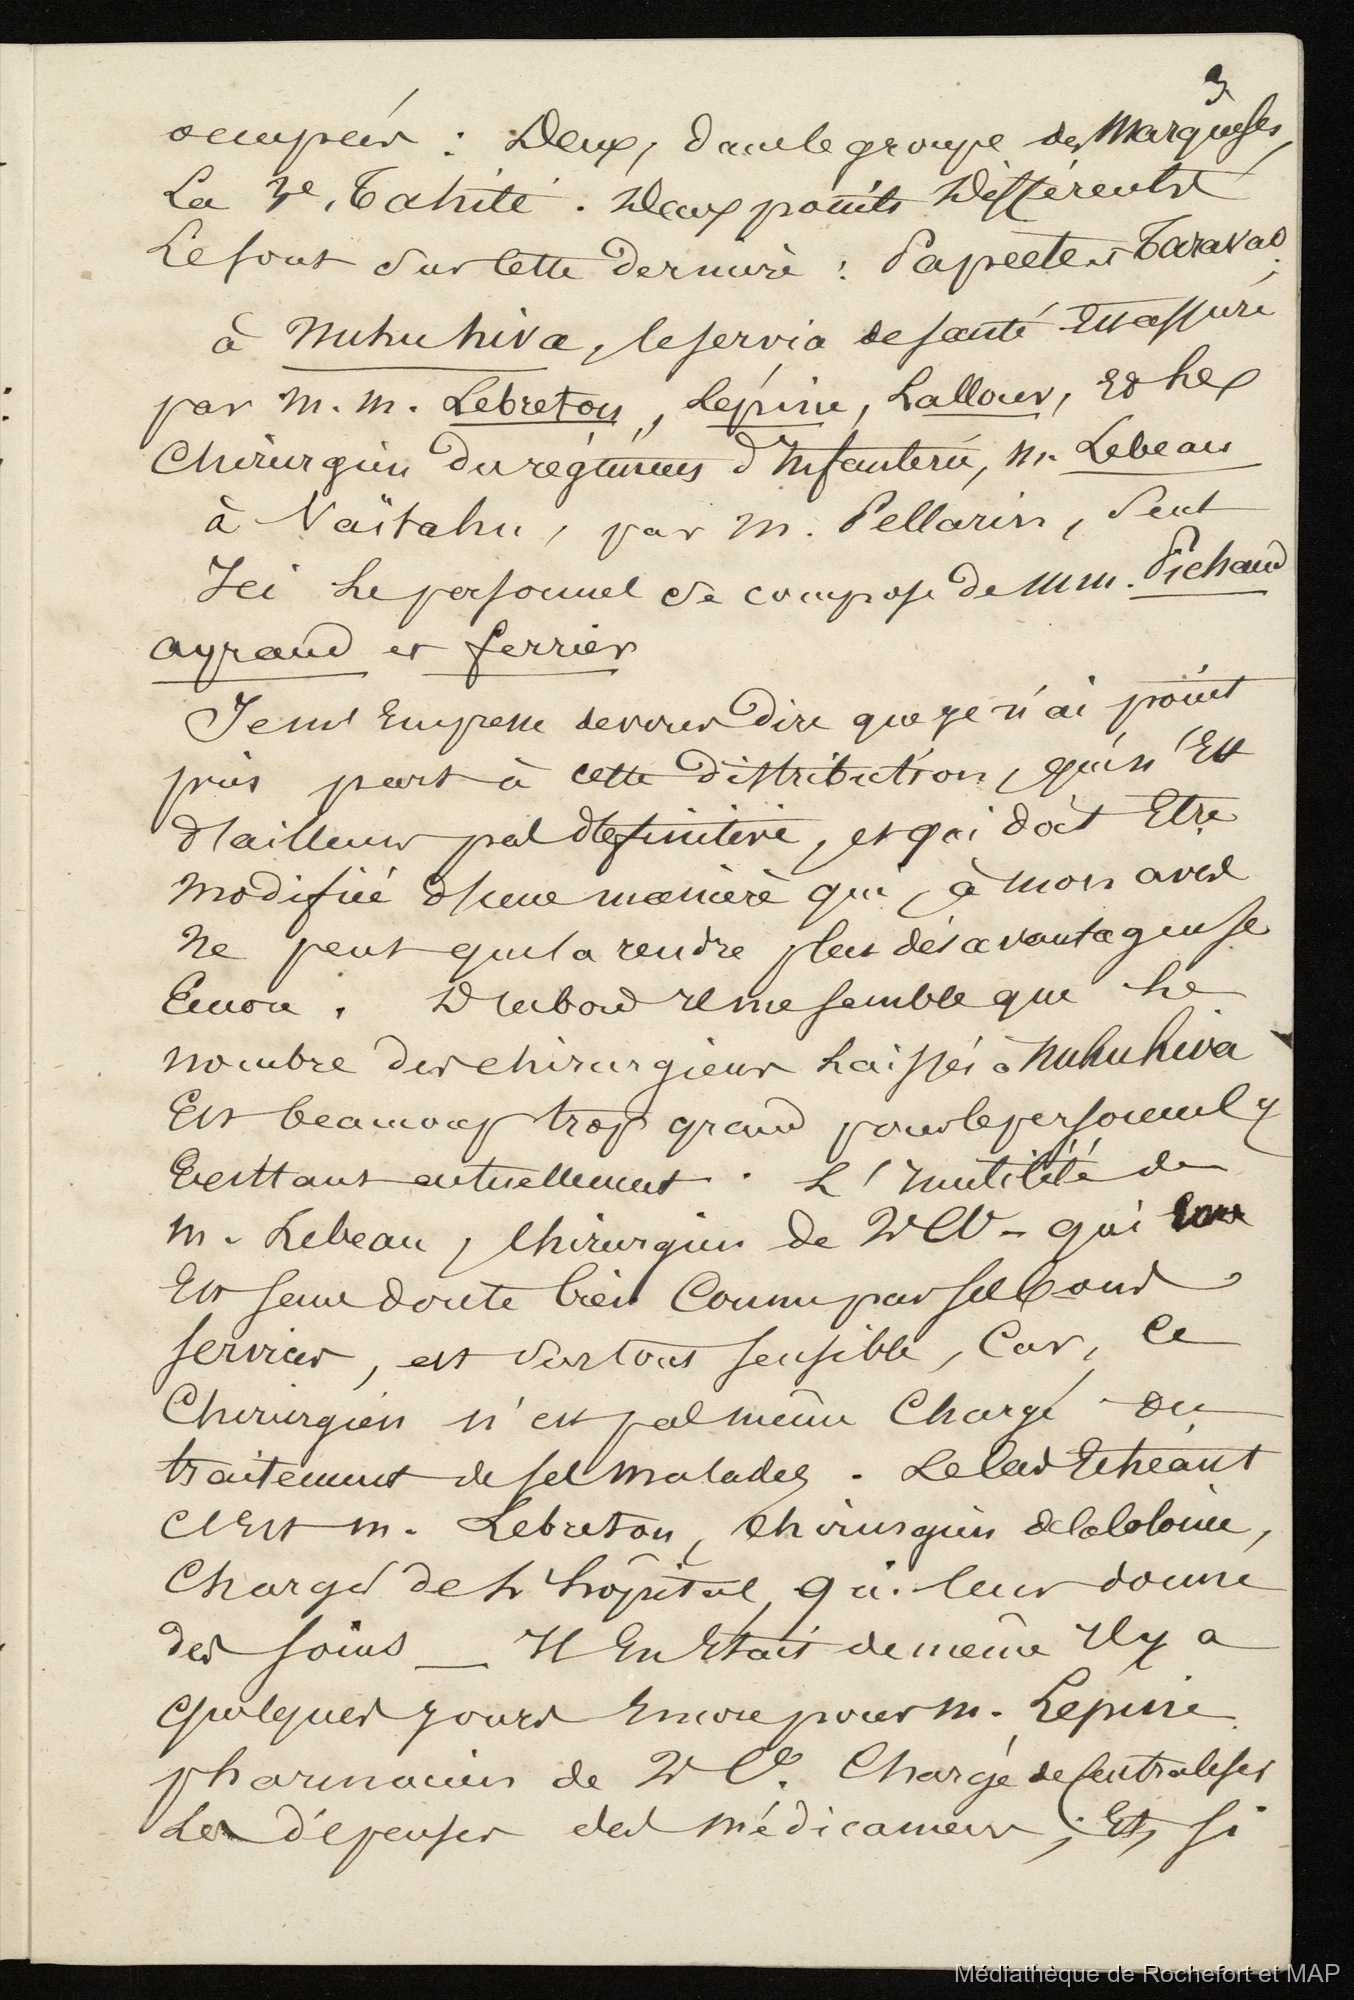 3
occupées : Deux, dans le groupe des Marquises,
La 3e, Tahiti. Deux points Différents
Le sont sur cette dernière : Papeete et Taravao
à Nuhuhiva, le service de santé Est assuré
par M. M. Lebreton, Lépine, Lallour, Et le
Chirurgien du régiment d'Infanterie, M. Lebeau
à Vaïtahu, par M. Pellarin, seul
Ici Le personnel se compose de MM. Pichaud
ayraud et ferrier
Je m'Empresse de vous Dire que je n'ai point
pris part à cette distribution, qui n'Est
d'ailleurs pas définitive, et qui doit Etre
Modifiée d'une manière qui, à mon avis
Ne peut que la rendre plus désavantageuse
Encore. D'abord Il me semble que Le
nombre des chirurgiens Laissés à Nuhuhiva
Est beaucoup trop grand pour le personnel y
Existant actuellement. L'Inutilité de
M. Lebeau, Chirurgien de 2e Cl- qui
Est sans doute bien Connu par ses bons
services, est surtout sensible, Car, Ce
Chirurgien n'est pas même Chargé du
traitement de ses Malades. Le Cas Echéant
C'Est M. Lebreton, Chirurgien de la Colonie,
Chargé de L'hôpital, qui leur donne
des soins _ Il En Etait de même Il y a
quelques jours Encore pour M. Lépine
pharmacien de 2e Cl. Chargé de Centraliser
Les dépenses des médicamens ; Et, si
Médiathèque de Rochefort et MAP